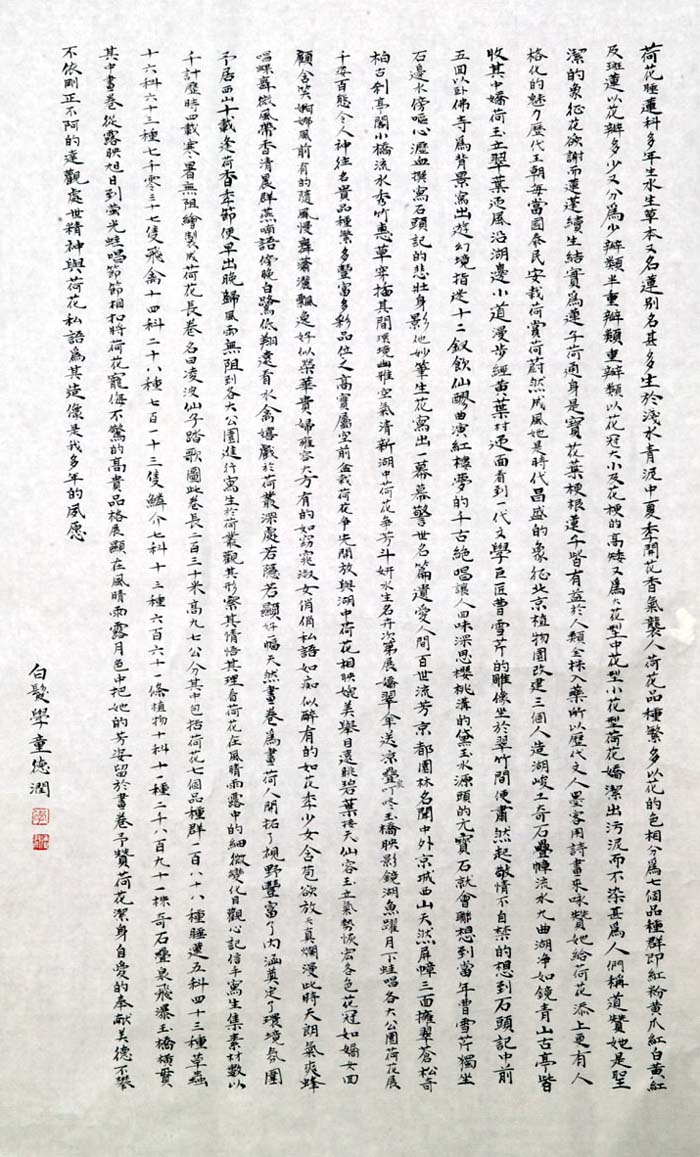 荷花睡蓮科多年生水生草本又名蓮別名甚多生於淺水青泥中夏季開花香氣襲人荷花品種繁多以花的色相分爲七個品種群即紅粉黄爪紅白黄紅
及斑蓮以花瓣多少又分爲少瓣類半重瓣類重瓣類以花冠大小及花梗的高矮又爲大花型中花型小花型荷花嬌潔出汚泥而不染甚爲人們稱道贊她是聖
潔的象征花欲謝而蓮蓬續生結實爲蓮子荷通身是寶花葉梗根蓮子皆有益於人類全株入藥所以歷代文人墨客用詩畫來咏贊她給荷花添上更有人
格化的魅力歷代王朝每當國泰民安栽荷賞荷蔚然成風她是時代昌盛的象征北京植物園改建三個人造湖峻工奇石疊幛流水九曲湖淨如鏡青山古亭皆
收其中嬌荷玉立翠葉迎風沿湖邊小道漫步經黄葉村迎面看到一代文學巨匠曹雪芹的雕像坐於翠竹間便肅然起敬情不自禁的想到石頭記中前
五回以卧佛寺爲背景寫出遊幻境指迷十二釵飲仙醪曲演紅樓夢的千古絶唱讓人回味深思櫻桃溝的黛玉水源頭的元寶石就會聯想到當年曹雪芹獨坐
石邊水傍嘔心瀝血撰寫石頭記的悲壮身影他妙筆生花寫出一幕幕警世名篇遺愛人間百世流芳京都園林名聞中外京城西山天然屏幛三面擁翠蒼松奇
柏古刹亭閣小橋流水秀竹蕙草穿插其間環境幽雅空氣清新湖中荷花争芳斗妍水生名卉次第展嬌翠傘送凉疊泉叮咚玉橋映影鏡湖魚躍月下蛙唱各大公園荷花展
千姿百態令人神往名貴品種繁多豐富多彩品位之高實屬空前盆栽荷花争先開放與湖中荷花相映婉美舉目遠眺碧葉接天仙容玉立氣勢恢宏各色花冠如嬌女回
顧含笑婀娜風前有的隨風慢舞瀟灑飄逸好似榮華貴婦雍容大方有的如窈窕淑女俏俏私語如痴似醉有的如花季少女含苞欲放天真爛漫此時天朗氣爽蜂
唱蝶舞微風帶香清晨群燕喃語傍晚白鷺低翔還有水禽嬉戲於荷叢深處若隱若顯好一幅天然畫卷爲畫荷人開拓了視野豐富了内涵奠定了環境氛圍
予居西山十載逢荷香季節便早出晚歸風雨無阻到各大公園進行寫生於荷叢觀其形察其情悟其理看荷花在風晴雨露中的細微變化目觀心記信手寫生集素材數以
千計歷時四載寒署無阻繪製成荷花長卷名曰凌波仙子踏歌圖此卷長二百三十米高九七公分其中包括荷花七個品種群一百八十八種睡蓮五科四十三種草蟲
十六科六十三種七千零三十七隻飛禽十四科二十八種七百一十三隻鱗介七科十三種六百六十一條植物十科十一種二千八百九十一棵奇石疊泉飛瀑玉橋横貫
其中畫卷從露映旭日到螢光蛙唱節節相扣將荷花寵侮不驚的高貴品格展顯在風晴雨露月色中把她的芳姿留於畫卷予贊荷花潔身自愛的奉献美德不攀
不依剛正不阿的達觀處世精神與荷花私語爲其造像是我多年的夙愿
白髮學童德潤